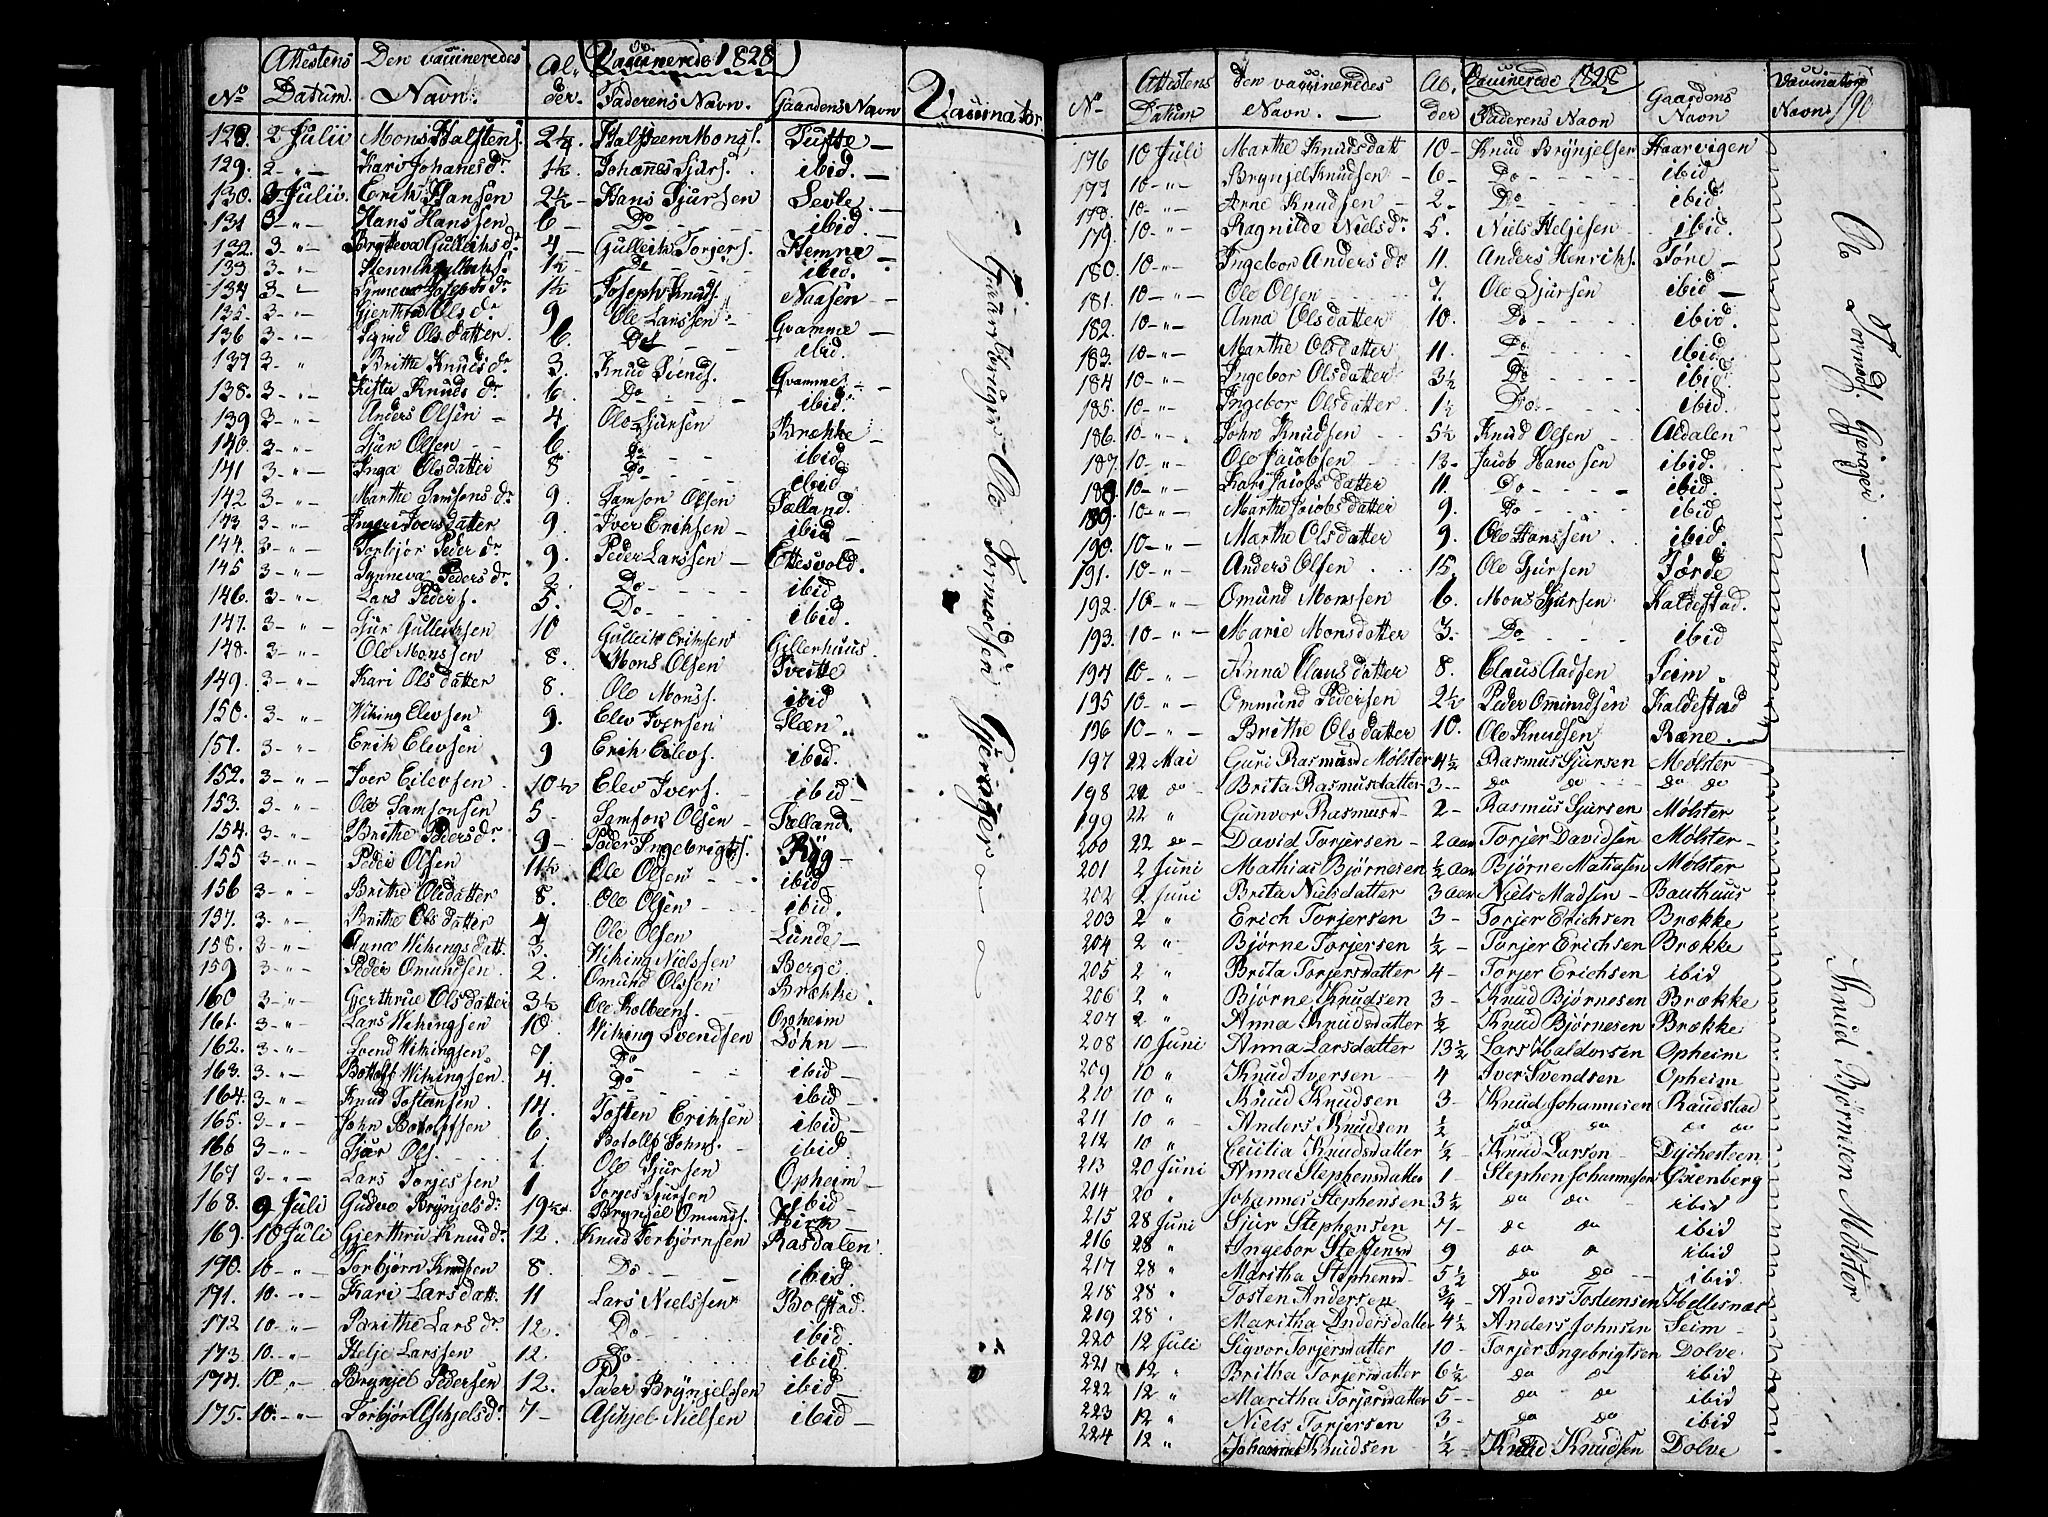 No Attestens Datum. Den vaccineredes Navn. Al- der. Vaccinerede 1828 Faderens Navn. Gaardens Navn Vaccinator
128. 2 Julii Mons Halstens. 2 1/4 Halsteen Mons. Tufte
129. 2 - " - Kari Johanes dr 1 1/2 Johannes Sjurs. ibid.
130. 3 Julii. Erik Hansen 2 1/2 Hans Sjursen Sevle
131 3 - " - Hans Hanssen 6 - Do ibid.
132. 3 - " - Brytteva Gulleiks dr 4 - Gulleik Torjers. Hemre
133 3 - " - 1 1/2 Do ibid.
134 3 - " - Synneva Josephs dr 1 1/2 Joseph Knuds. Naasen
135. 3 - " - Gjertru Ols dr 9 Ole Larssen Gvamme
136 3 - " - Sigrid Olsdatter. 6. Do ibid.
137 3 - " Britte Knuds dr 3. Knud Svends. Gvamme
138. 3 - " - Knuds dr 6. Do ibid.
139 3 - " - Anders Olsen 4 Ole Sjursen Brække
140 3 - " - Sjur Olsen 6 Do ibid
141 3 - " - Inga Olsdatter 8 Do ibid
142 3 - " - Marthe Samsons dr 9. Samson Olsen Sælland.
143 3 - " - Ingeri Iversdatter 9. Iver Eriksen ibid
144. 3 - " - Torbjør Peder dr 9. Peder Larssen Ettesvold.
145 3 - " - Synneva Peders dr Do ibid.
146. 3 - " - Lars Peders. 5. Do ibid.
147. 3 - " - Sjur Gulleiksen 10 Gulleik Eriksen Gillerhuus
148. 3 - " - Ole Monssen 8. Mons Olsen Tveitte
149. 3 - " - Kari Olsdatter 8. Ole Mons. ibid
150. 3 - " - Wiking Elevsen 9. Elev Iversen Slæn.
151. 3 - " - Erik Elevsen 9 Erik Eilevs. ibid.
152. 3 - " - Iver Eilevsen 10 1/2 Elev Ivers. ibid
153. 3 - " Ole Samsonsen 5 - Samson Olsen Sælland.
154. 3 - " Brithe Peders dr 9 - Peder Ingebrigts. Rÿg
155 3 - " - Peder Olsen 11 1/2 Ole Olsen ibid
156 3 - " - Brithe Olsdatter 8. Ole Olsen ibid.
157. 3 - " - Brithe Olsdatter 4 Ole Olsen Lunde
158. 3 - " - Wikings datt. 3. Wiking Nielssen Berge
159 3 - " - Peder Omundsen. 2. Omund Olssen Brække
160 3 - " - Gjerthrue Olsdatter 3 1/2 Ole Kolbeens. Opheim
161. 3 - " - Lars Wikingsen 10. Wiking Svendsen Löhn
162. 3 - " - Svend Wikingsen 7. Do ibid
163. 3 - " - Bottolf Wikingsen. 4. Do ibid
164. 3 - " - Knud Tostensen 14. Tosten Eriksen ibid
165. 3 - " - John Botolfsen 6. Botolf Johns. ibid
166 3 - " - Sjur Ols. 1. Ole Sjursen Opheim
167 3 - " - Lars Torjessen 1 Torjes Sjursen ibid
168. 9 Juli Gudve Brÿnjels dr 19 Brÿnjel Omunds. Kirk
169. 10 Juli Gjerthru Knud dr 12. Knud Torbjørnsen Rasdalen.
170. 10 - " - Torbjørn Knudsen 8. Do ibid.
171. 10. - " - Kari Lars datt. 11 Lars Nielssen Bolstad.
172 10 - " - Brithe Lars dr 12. Do ibid.
173. 10. - " - Helje Larssen 12. Do ibid.
174. 10 - " - Brÿnjel Pedersen 12. Peder Brÿnjelssen ibid
175. 10. - " - Torbjør Askjels dr 7 - Askjel Nielsen ibid
Ole Tormodsen Gjerager
No Attestens Datum den vaccineredes Navn. Al. der Vaccinerede 1828 Faderens Navn Gaardens Navn Vaccinators Navn 190
176 10 Juli Marthe Knudsdatt 10 - Knud Brÿnjelsen Haarvigen
177 10 - " - Brynjel Knudsen 6 - Do ibid
178. 10 - " - Arne Knudsen 2. Do ibid.
179. 10 - " Ragnilda Niels dr 5. Niels Heljesen ibid.
180. 10 - " Ingebor Anders dr 11. Anders Henriks. Tøne
181. 10 - " - Ole Olsen 7. Ole Sjursen ibid
182. 10 - " - Anna Olsdatter 10. Do ibid.
183. 10 - " - Marthe Olsdatter 11. Do ibid
184 10 - " - Ingebor Olsdatter 3 1/2 Do ibid.
185. 10 - " - Ingebor Olsdatter. 1 1/2 Do ibid.
186. 10 - " - John Knudsen 5 1/2 Knud Olsen Aldalen
187. 10 - " - Ole Jacobsen 13 - Jacob Hanssen ibid.
188. 10 - " - Kari Jacobs datter 11. Do ibid.
189. 10 - " - Marthe Jacobsdatter 9. Do ibid
190. 10 - " - Marthe Olsdatter 9. Ole Hanssen ibid.
191. 10 - " - Anders Olsen 15. Ole Sjursen Førde
192. 10 - " - Omund Monssen 6. Mons Sjursen Kaldestad.
193. 10 - " - Marie Monsdatter 3. Do ibid
194 10 - " - Anna Clausdatter 8. Claus Aadsen Seim.
195. 10 - " - Ommund Pedersen 2 1/2 Peder Ommundsen Kaldestad
196 10 - " - Brithe Olsdatter 10. Ole Knudsen Ræne.
197 22 Mai Guri Rasmusd Mølster 4 1/2 Rasmus Sjursen Mølster
198 22 do - Brita Rasmusdatter 3 - do do do do
199 22 " Gunvor Rasmusd 2 - Rasmus Sjursen Mølster
200 22 do - David Torjersen 2 aar Torjer Davidsen Mølster
201 2 Juni Mathias Bjørnesen 1/2 aar Bjørne Matiasen Mølster
202 2 Juni Brita Nielsdatter 3 aar Niels Madsen - Bauthuus
203 2 " Erich Torjersen 3 - Torjer Erichsen Brække
204 2 " Bjørne Torjersen 1/2 - Torjer Erichsen Brække
205 2 " Brita Torjersdatter 4 - Torjer Erichsen ibid
206 2 " Bjørne Knudsen 3 - Knud Bjørnesen Brække
207 2 " Anna Knudsdatter 1/2 Knud Bjørnesen Brække
208 10 Juni Anna Larsdatter 13 1/2 Lars Haldorsen Opheim
209 10 " Knud Iversen 4 Iver Svendsen Opheim
210 10 " Knud Knudsen 3 - Knud Johannesen Raudstad
211 10 " Anders Knudsen 1/2 do do do do
212 10 " Cecilia Knudsdatter 1/2 - Knud Larson Dÿchesteen
213 20 Juni Anna Stephensdatter 1 - Stephen Johannesen Øienberg
214 20 " Johannes Stephensen 3 1/2 do do ibid
215 28 Juni Sjur Stephensen 7 - do do ibid
216 28 " Ingebor Steffensd 9 do do ibid
217 28 " Maritha Stephensd 5 1/2 do do ibid
218 28 " Tosten Andersen 3/4 Anders Tostensen Hellesnæs
219 28 " Maritha Andersdatter 4 1/2 Anders Johnsen Seim
220 12 Juli Sigvor Torjersdatter 10 - Torjer Ingebrigtsen Dolve
221 12 " Britha Torjersdatter 6 1/2 do do ibid
222 12 " Maritha Torjersdatter 5 - do do ibid
223 12 " Niels Torjersen 3 - do do ibid
224 12 " Johannes Knudsen 1/2 Knud Knudsen Dolve
Knud Bjørnesen Mølster